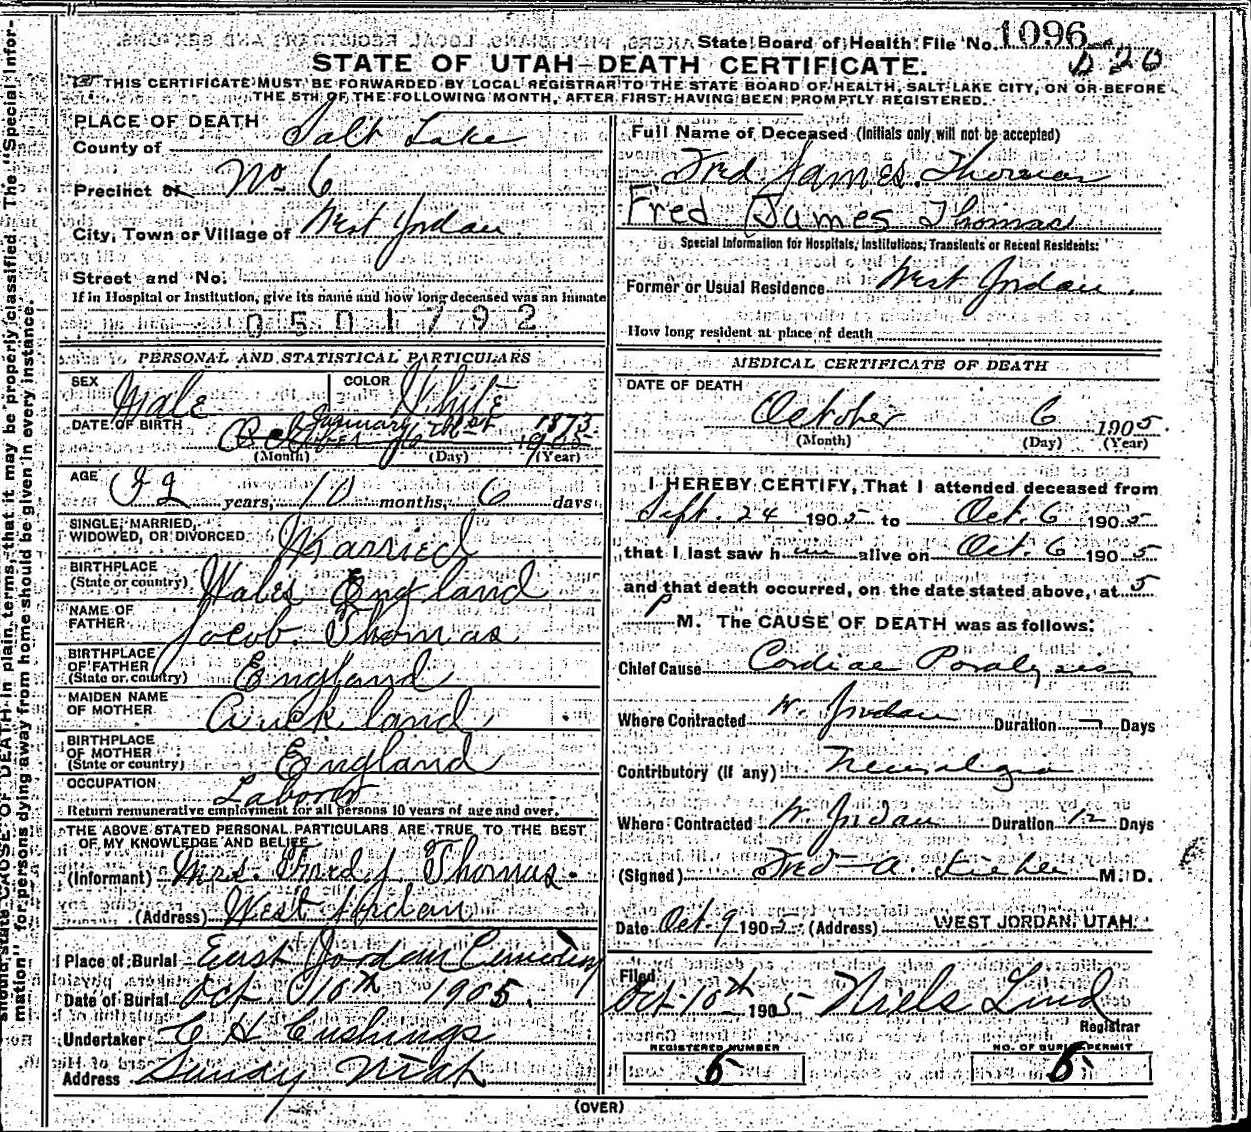 State Board of Health File No. 1096
STATE OF UTAH—DEATH CERTIFICATE.
THIS CERTIFICATE MUST BE FORWARDED BY LOCAL REGISTRAR TO THE STATE BOARD OF HEALTH, SALT LAKE CITY, ON OR BEFORE
THE 5TH OF THE FOLLOWING MONTH, AFTER FIRST HAVING BEEN PROMPTLY REGISTERED.
PLACE OF DEATH
County of Salt Lake
Precinct of No 6
City, Town or Village of West Jordan
Street and No.
If in Hospital or Institution, give its name and how long deceased was an inmate
0501792
PERSONAL AND STATISTICAL PARTICULARS
SEX Male COLOR White
DATE OF BIRTH January 1873
October 1905
(Month) (Day) (Year)
AGE 32 years, 10 months, 6 days
SINGLE, MARRIED,
WIDOWED, OR DIVORCED Married
BIRTHPLACE
(State or country) Wales England
NAME OF
FATHER Jacob Thomas
BIRTHPLACE
OF FATHER
(State or country) England
MAIDEN NAME
OF MOTHER Auckland
BIRTHPLACE
OF MOTHER
(State or country) England
OCCUPATION
Laborer
Return remunerative employment for all persons 10 years of age and over.
THE ABOVE STATED PERSONAL PARTICULARS ARE TRUE TO THE BEST
OF MY KNOWLEDGE AND BELIEF
(Informant) Mrs. Fred J Thomas.
(Address) West Jordan
Place of Burial East Jordan Cemetery
Date of Burial Oct. 10th 1905.
Undertaker C H Cushings
Address Sandy Utah
Full Name of Deceased (Initials only will not be accepted)
Fred James Thomas
Fred James Thomas
Special Information for Hospitals, Institutions, Transients or Recent Residents:
Former or Usual Residence West Jordan
How long resident at place of death
MEDICAL CERTIFICATE OF DEATH
DATE OF DEATH
October 6 1905
(Month) (Day) (Year)
I HEREBY CERTIFY, That I attended deceased from
Sept. 24 1905 to Oct. 6 1905
that I last saw him alive on Oct. 6 1905
and that death occurred, on the date stated above, at 5
P M. The CAUSE OF DEATH was as follows:
Chief Cause Cardiac Paralysis
Where Contracted W. Jordan Duration — Days
Contributory (if any) Neuralgia
Where Contracted W. Jordan Duration 12 Days
(Signed) Fred A. M. D.
Date Oct. 9 1905 (Address) WEST JORDAN, UTAH.
Filed
Oct 10th 1905 Niels Lind
Registrar
REGISTERED NUMBER
5
NO. OF BURIAL PERMIT
5
(OVER)
should state CAUSE OF DEATH in plain terms, that it may be properly classified. The "Special Infor-
mation" for persons dying away from home should be given in every instance.